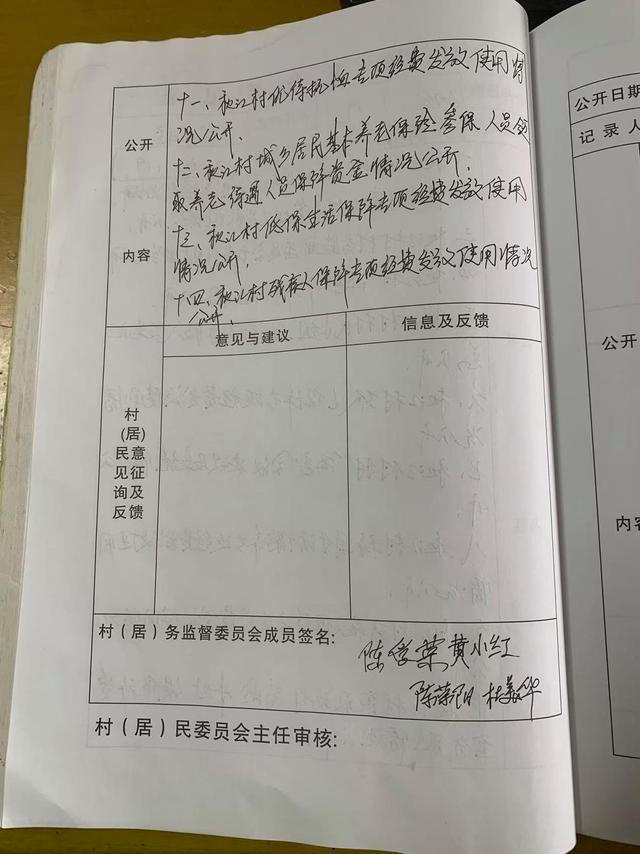 公开
内容
十一、秋江村优待抚恤专项经费发放使用情
况公开.
十二、秋江村城乡居民基本养老保险参保人员领
取养老待遇人员保障资金情况公开.
十三、秋江村低保生活保障专项经费发放使用
情况公开.
十四、秋江村残疾人保障专项经费发放使用情况
公开.
意见与建议
信息及反馈
村
(居)
民意
见征
询及
反馈
村（居）务监督委员会成员签名:
黄小红
村（居）民委员会主任审核:
公开日期
记录人
公开
内容